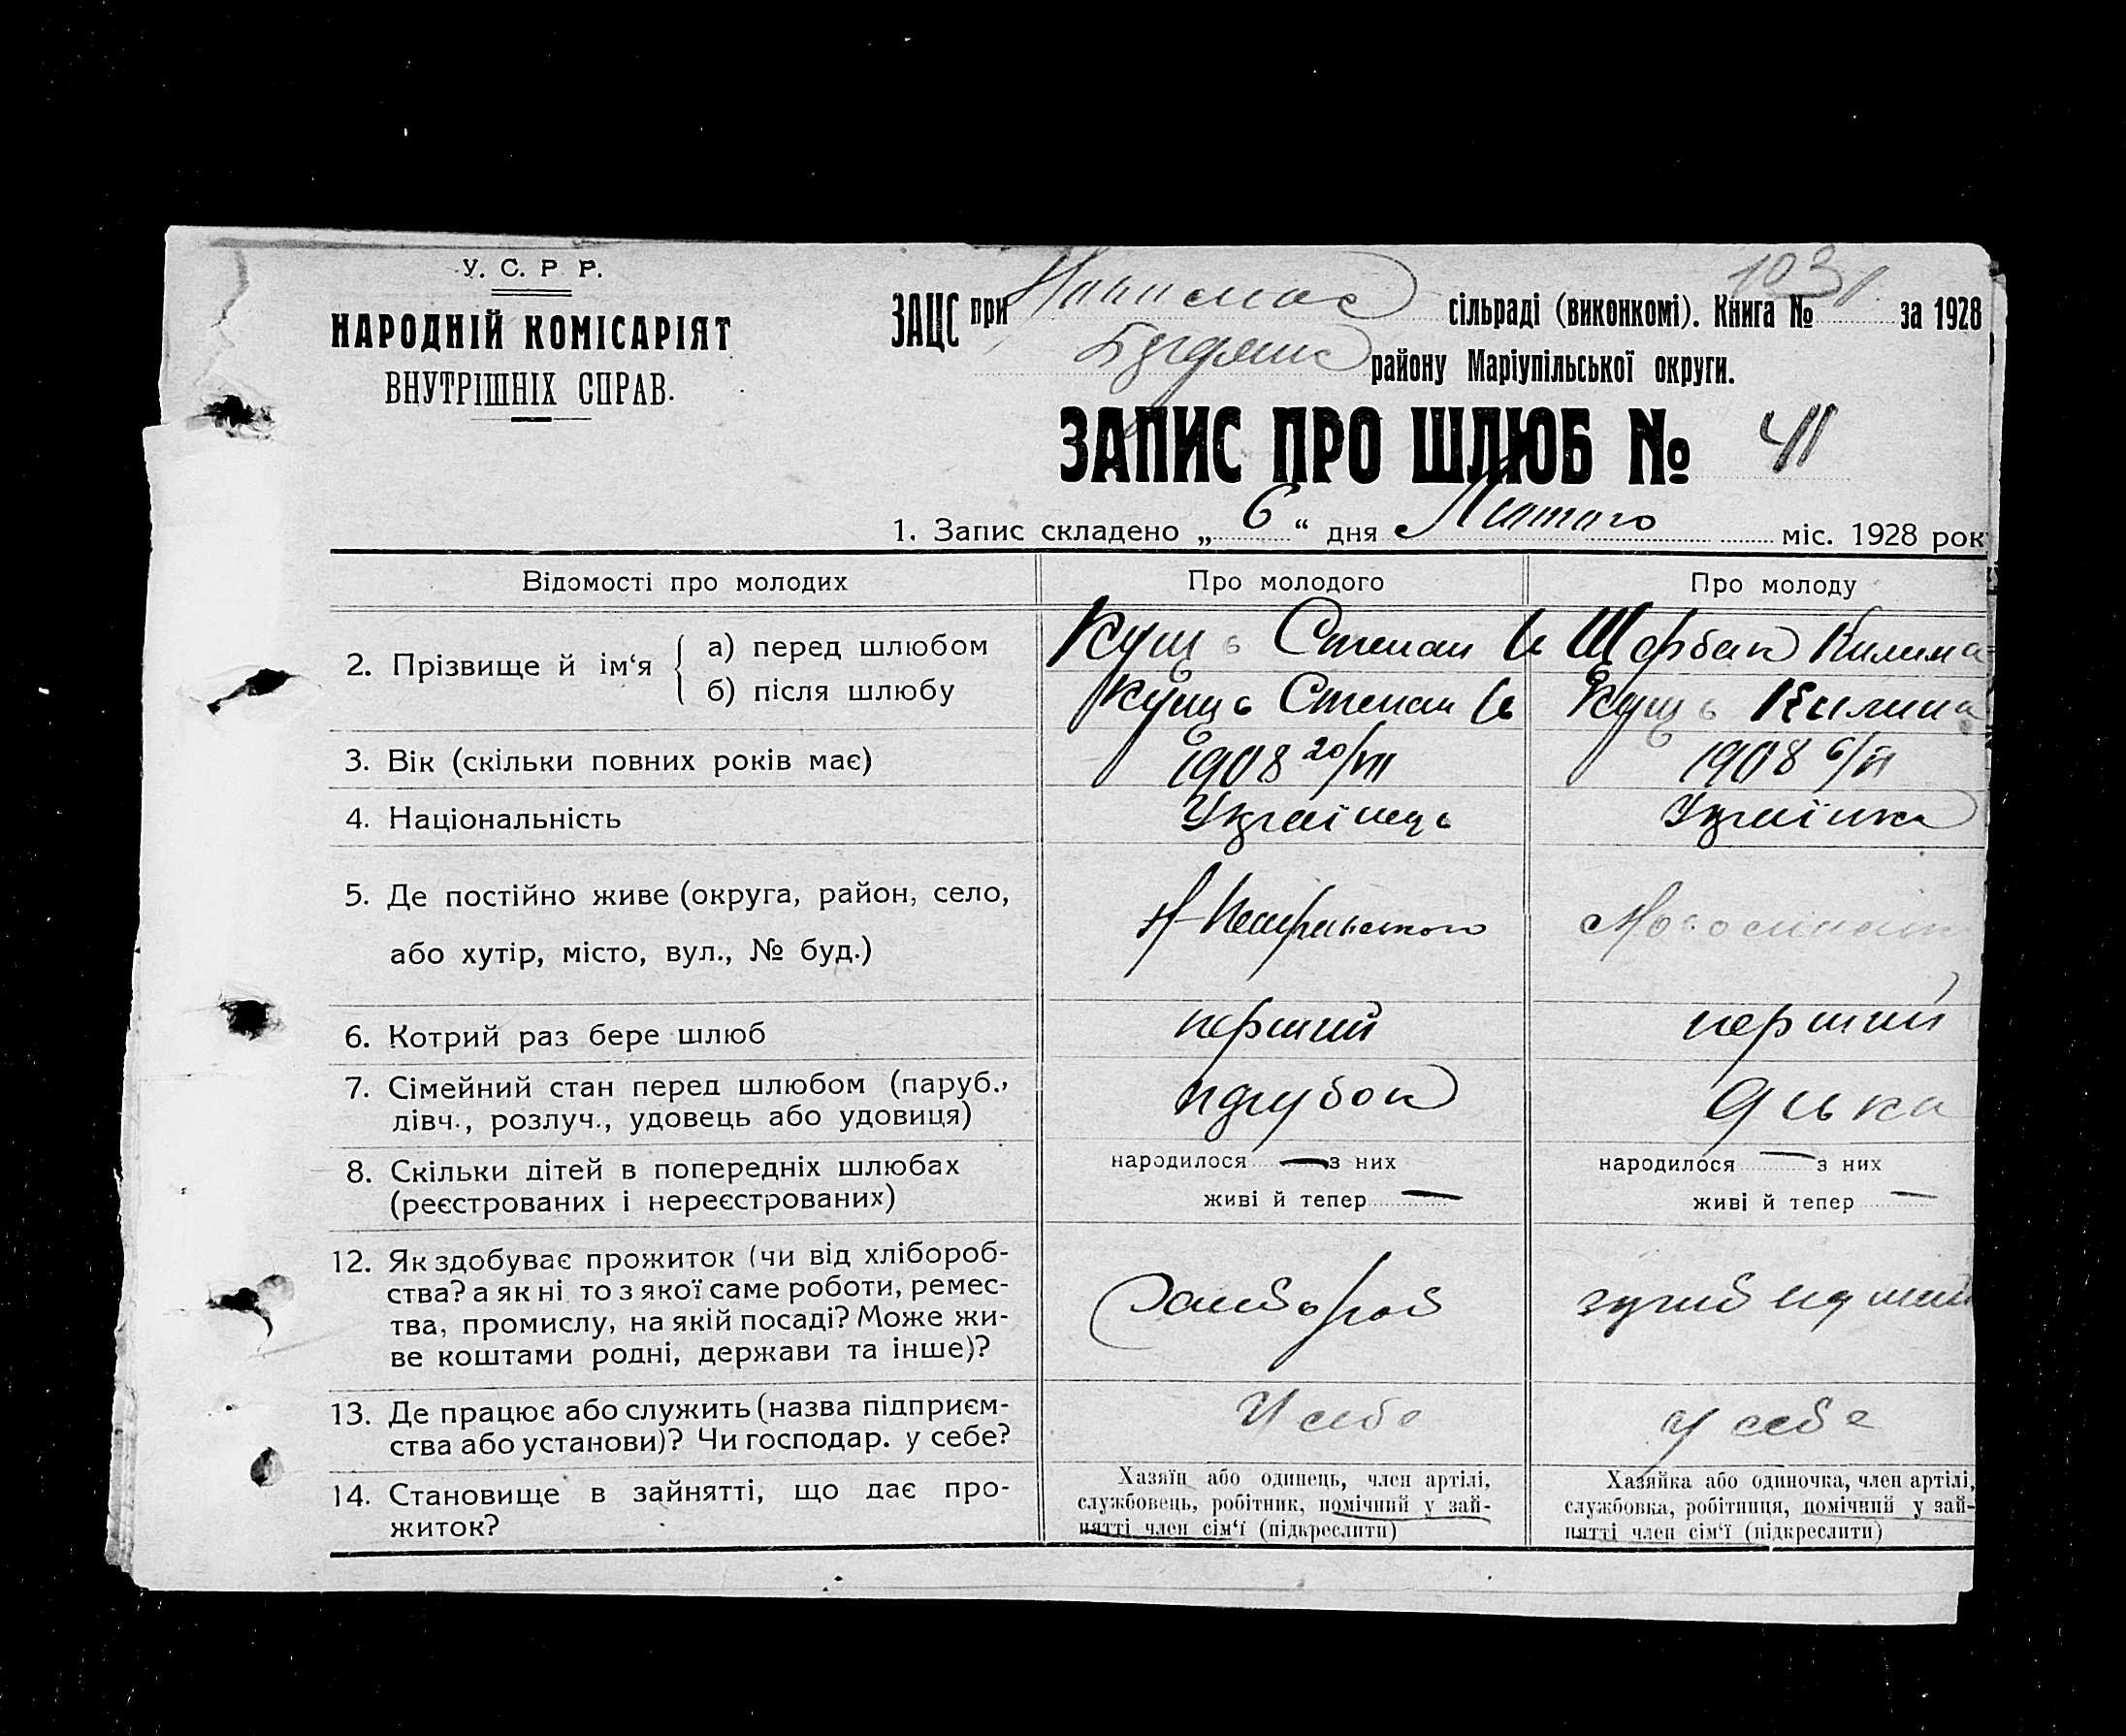 У. С. Р Р.
НАРОДНІЙ КОМІСАРІЯТ
ВНУТРІШНІХ СПРАВ.
103
ЗАЦС при сільраді (виконкомі). Книга № за 1928
району Маріупільської округи.
ЗАПИС ПРО ШЛЮБ № 41
1. Запис складено „ 6 “ дня Лютого міс. 1928 рок
Відомості про молодих Про молодого Про молоду
2. Прізвище й ім‘я
а) перед шлюбом Кущь Степан Щербак Килина
б) після шлюбу Кущь Степан Кущь Килина
3. Вік (скільки повних років має) 1908 20/VII 1908 6/VI
4. Національність Українець Українка
5. Де постійно живе (округа, район, село,
або хутір, місто, вул., № буд.)
6. Котрий раз бере шлюб перший перший
7. Сімейний стан перед шлюбом (паруб.,
дівч., розлуч., удовець або удовиця) парубок
8. Скільки дітей в попередніх шлюбах
(реєстрованих і нереєстрованих)
народилося — з них
живі й тепер —
народилося — з них
живі й тепер —
12. Як здобуває прожиток (чи від хлібороб-
ства? а як ні то з якої саме роботи, ремес-
тва, промислу, на якій посаді? Може жи-
ве коштами родні, держави та інше)?
13. Де працює або служить (назва підприєм-
ства або установи)? Чи господар. у себе?
У себе у себе
14. Становище в зайнятті, що дає про-
житок?
Хазяїн або одинець, член артілі,
службовець, робітник, помічний у зай-
нятті член сім‘ї (підкреслити)
Хазяйка або одиночка, член артілі,
службовка, робітниця, помічний у зай-
нятті член сім‘ї (підкреслити)